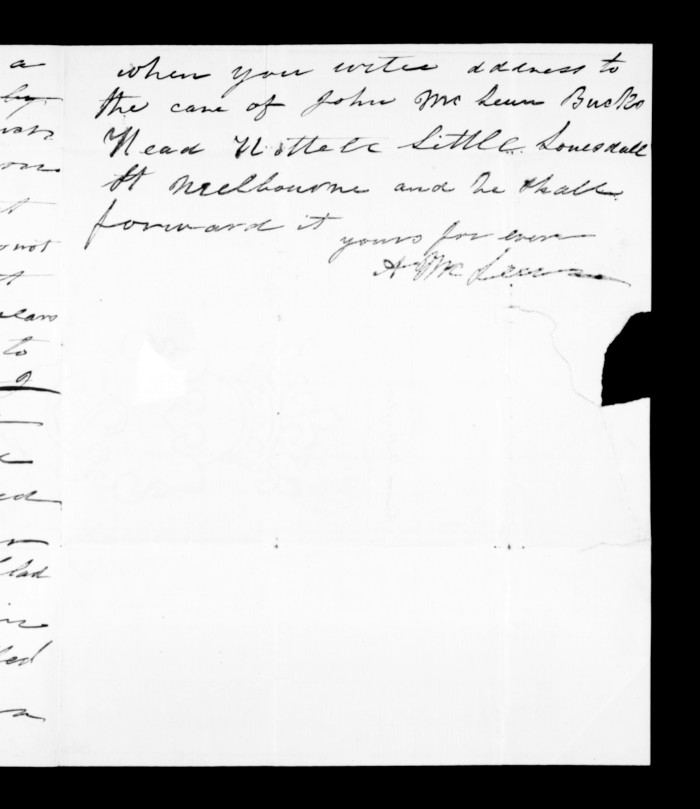 a
by
to
ed
glad
a
when you write address to
the care of John McLean Bucks
Head Hottele Little Lonesdall
St Melbourne and he shall
forward it
yours for ever
A McLean